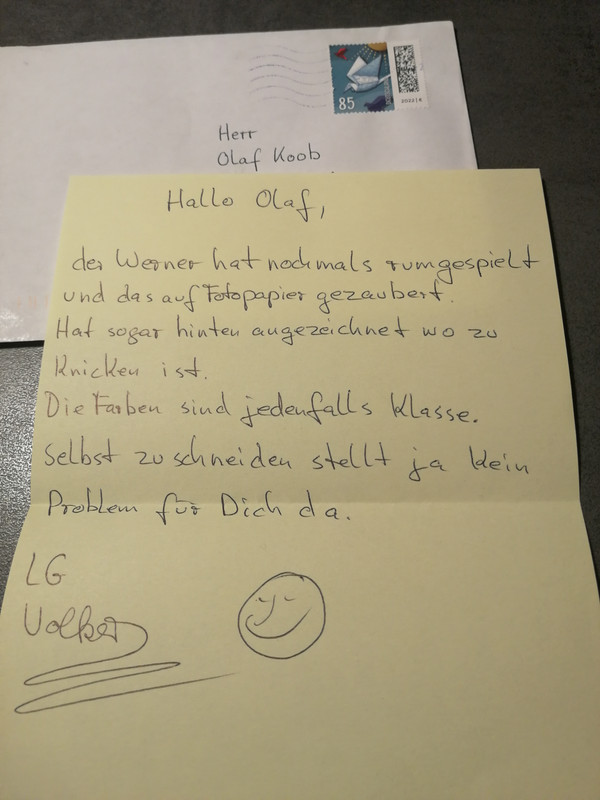 85
2022 | 4
Herr
Olaf Koob
Hallo Olaf,
der Werner hat nochmals rumgespielt
und das auf Fotopapier gezaubert.
Hat sogar hinten angezeichnet wo zu
Knicken ist.
Die Farben sind jedenfalls Klasse.
Selbst zu schneiden stellt ja kein
Problem für Dich da.
LG
Volker